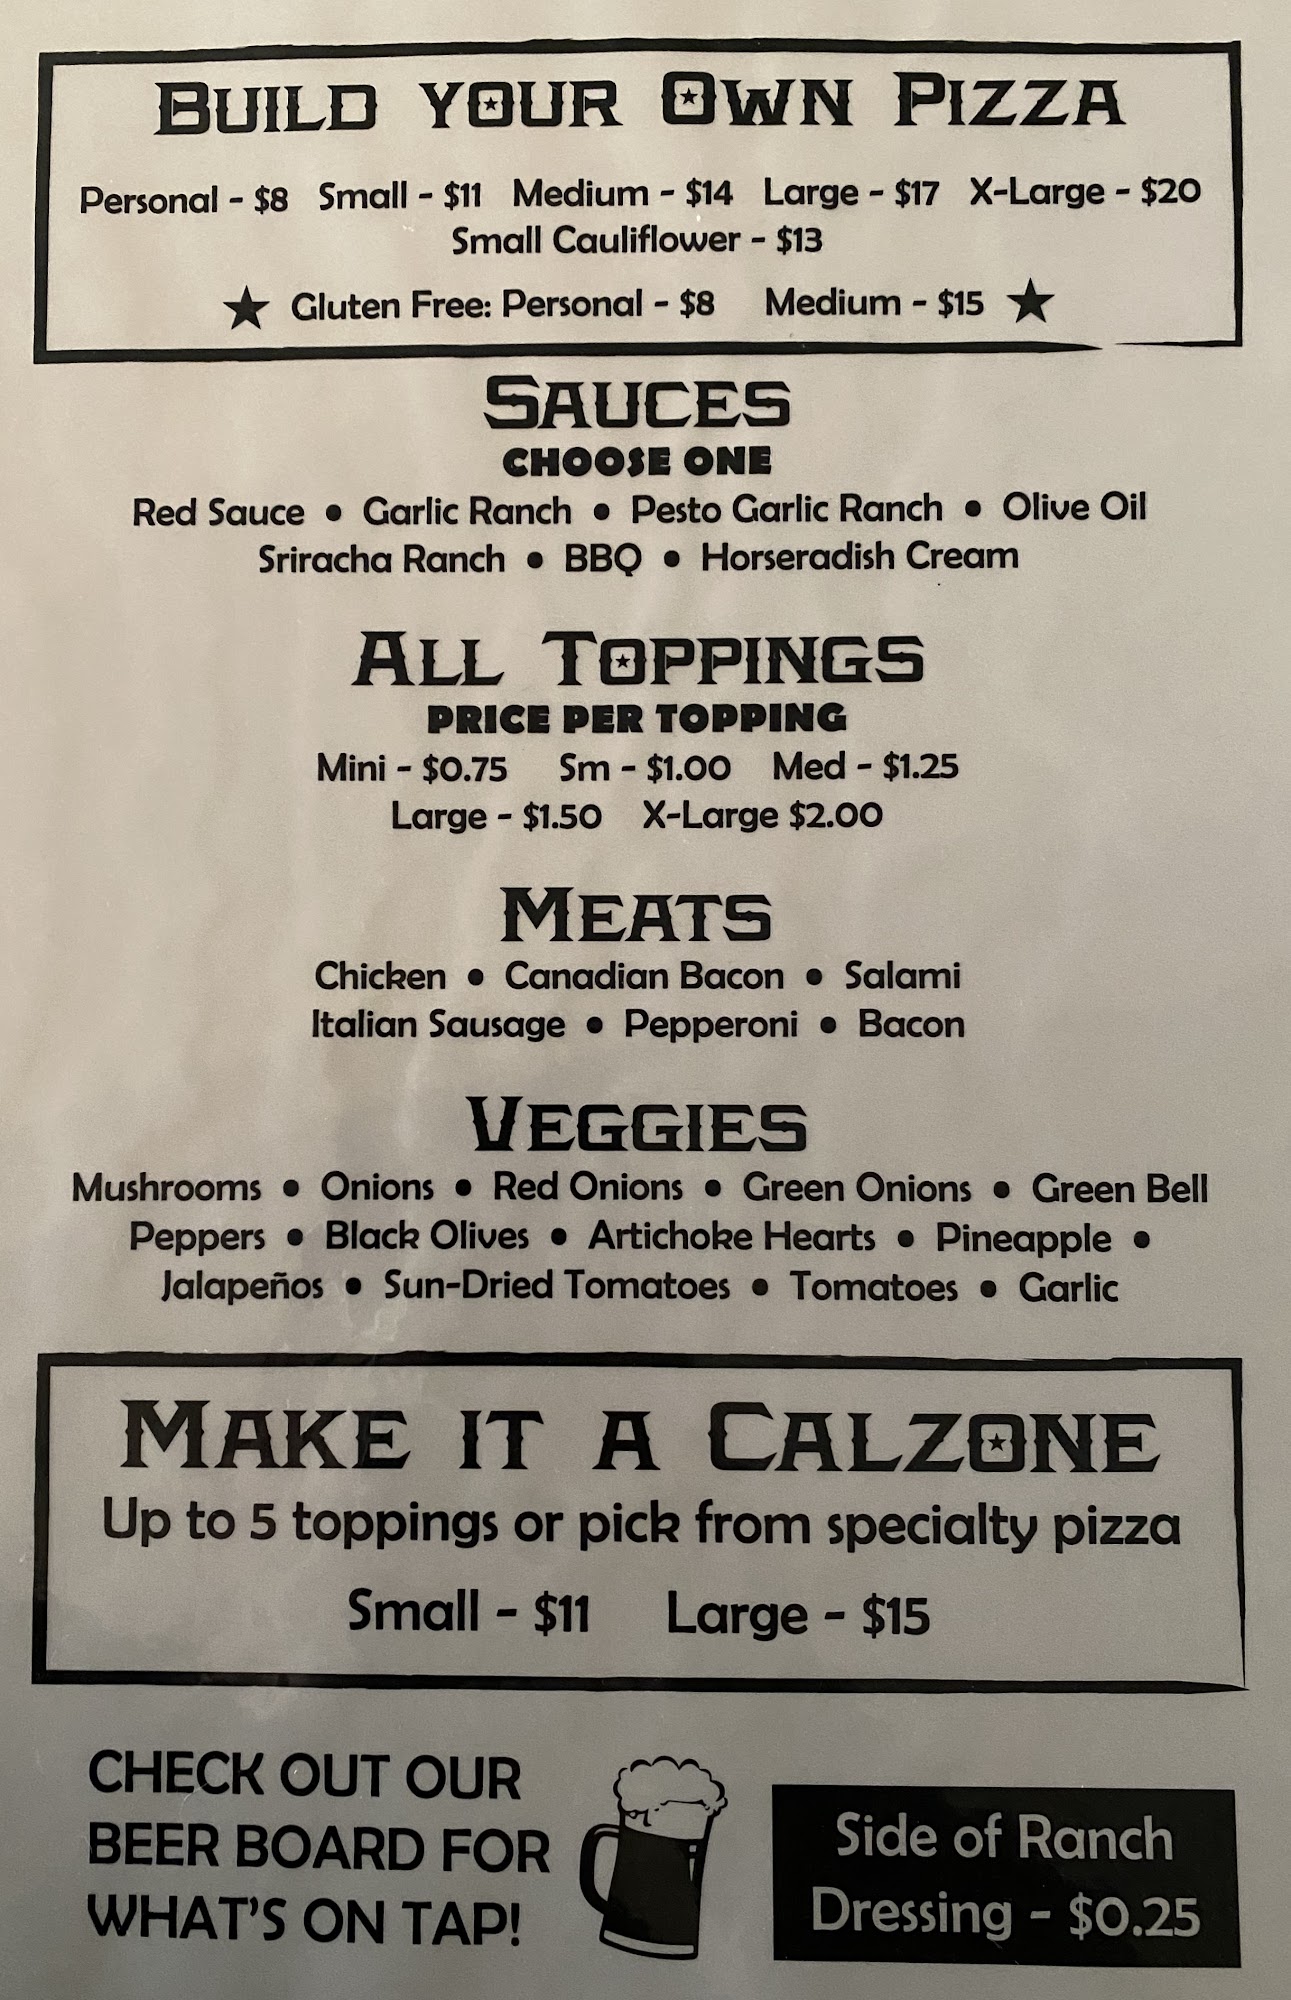 BUILD YOUR OWN PIZZA
Personal - $8 Small - $11 Medium - $14 Large - $17 X-Large - $20
Small Cauliflower - $13
★ Gluten Free: Personal - $8 Medium - $15 ★
SAUCES
CHOOSE ONE
Red Sauce • Garlic Ranch • Pesto Garlic Ranch • Olive Oil
Sriracha Ranch • BBQ • Horseradish Cream
ALL TOPPINGS
PRICE PER TOPPING
Mini - $0.75 Sm - $1.00 Med - $1.25
Large - $1.50 X-Large $2.00
MEATS
Chicken • Canadian Bacon • Salami
Italian Sausage • Pepperoni • Bacon
VEGGIES
Mushrooms • Onions • Red Onions • Green Onions • Green Bell
Peppers • Black Olives • Artichoke Hearts • Pineapple •
Jalapeños • Sun-Dried Tomatoes • Tomatoes • Garlic
MAKE IT A CALZONE
Up to 5 toppings or pick from specialty pizza
Small - $11 Large - $15
CHECK OUT OUR
BEER BOARD FOR
WHAT'S ON TAP!
Side of Ranch
Dressing - $0.25